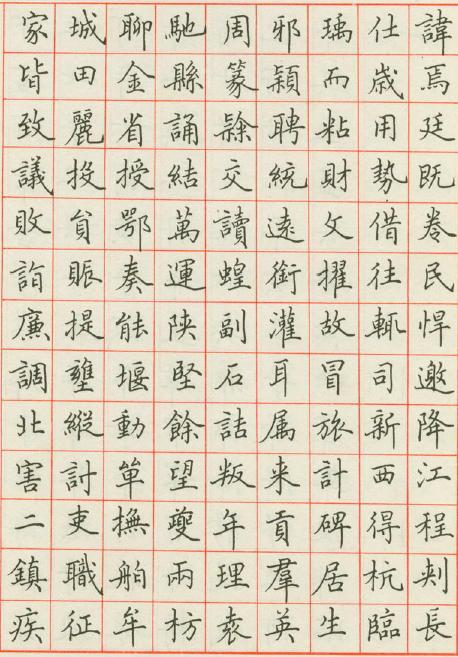 諱焉廷既卷民悍邀降江程刾長
仕歲用勢借往輒司新西得杭臨
瑀而粘財文擢故冒旅計碑居生
邪穎聘統遠銜灌耳属来貢羣英
周篆隸交讀蝗副石詁叛年理袁
馳縣誦結萬運陝堅餘望夔兩枋
聊金省授鄂奏能堰動單撫舶牟
城田麗投貟賑提壅縱討吏職征
家皆致議敗詣廉調北害二鎮疾